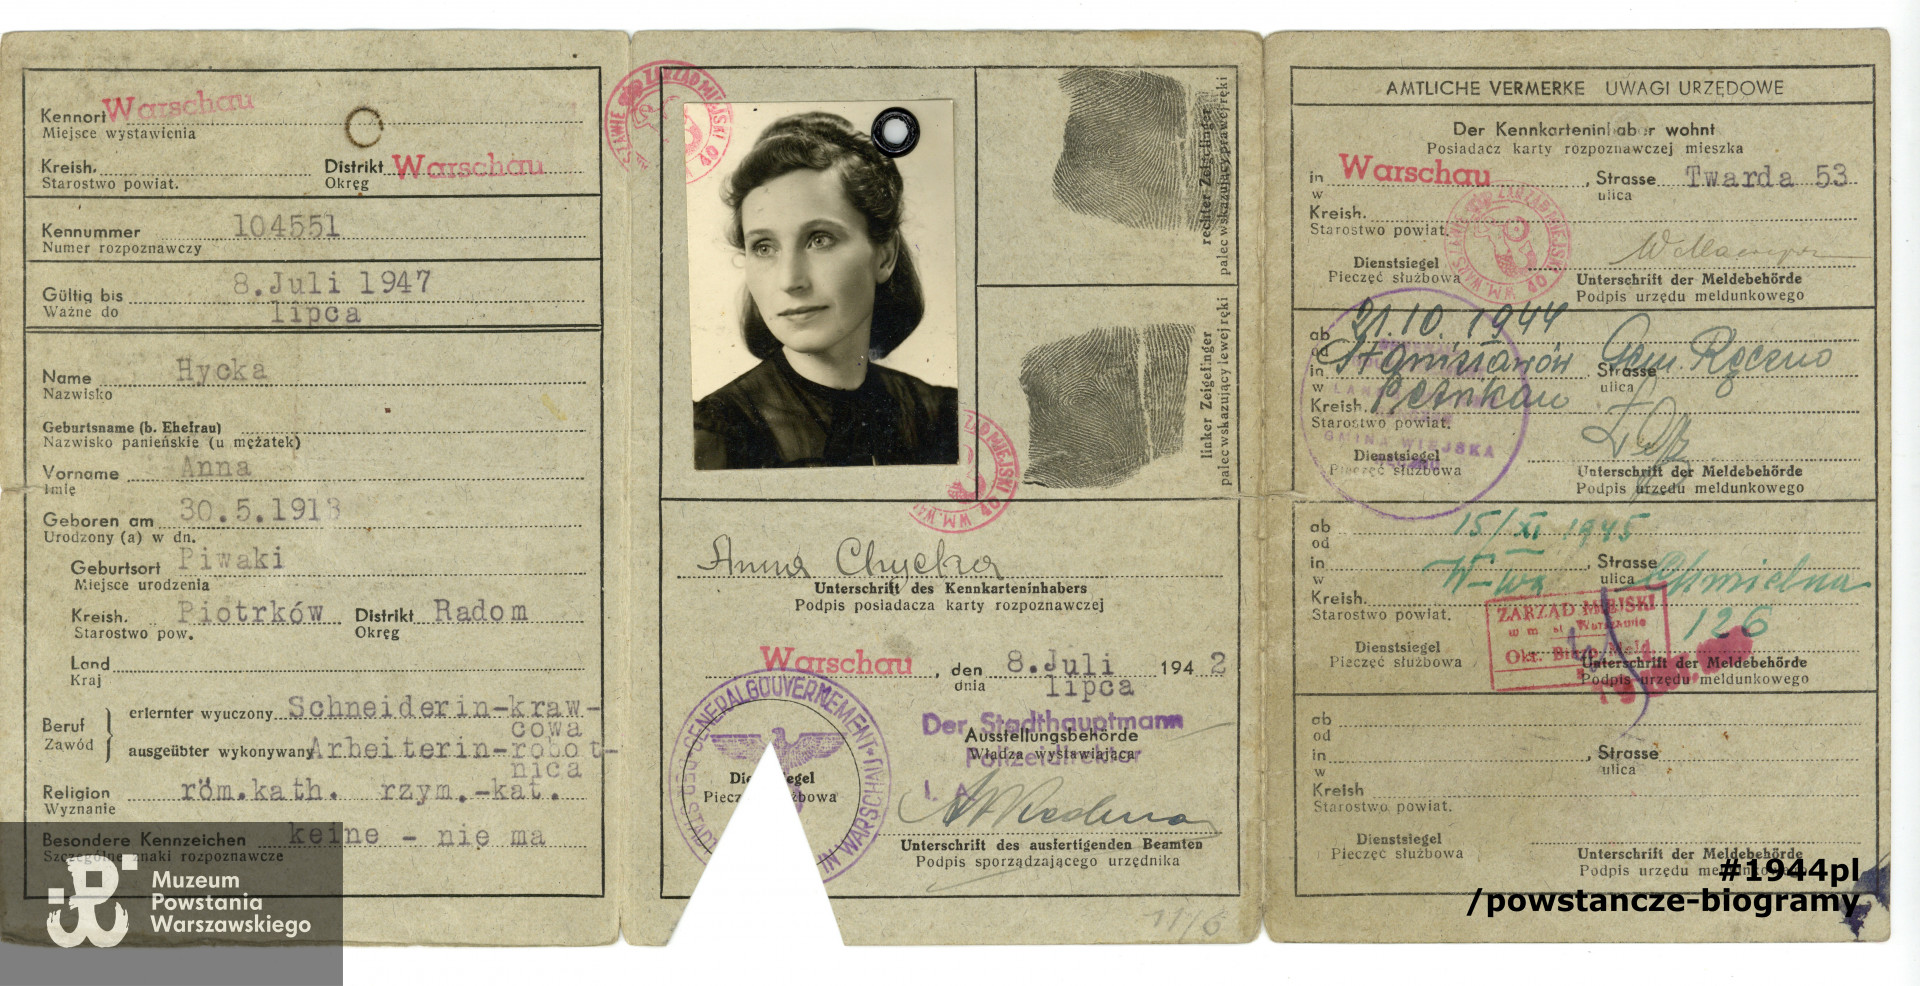 Kennort Warschau
Miejsce wystawienia
Kreish.
Starostwo powiat.
Distrikt Warschau
Okręg
Kennummer 104551
Numer rozpoznawczy
Gültig bis 8.Juli 1947
Ważne do lipca
Name Hycka
Nazwisko
Geburtsname (b. Ehefrau)
Nazwisko panieńskie (u mężatek)
Vorname Anna
Imię
Geboren am 30.5.1913
Urodzony (a) w dn.
Geburtsort Piwaki
Miejsce urodzenia
Kreish. Piotrków Distrikt Radom
Starostwo pow. Okręg
Land
Kraj
Beruf
Zawód
erlernter wyuczony Schneiderin-kraw-
cowa
ausgeübter wykonywany Arbeiterin-robot-
nica
Religion röm.kath. rzym.-kat.
Wyznanie
Besondere Kennzeichen keine - nie ma
Szczególne znaki rozpoznawcze
Muzeum
Powstania
Warszawskiego
rechter Zeigefinger
palec wskazujący prawej ręki
linker Zeigefinger
palec wskazujący lewej ręki
Anna Chycka
Unterschrift des Kennkarteninhabers
Podpis posiadacza karty rozpoznawczej
Warschau, den 8.Juli 1942
dnia lipca
Der Stadthauptmann
Ausstellungsbehörde
Władza wystawiająca
Polizeidirektor
I. A.
Unterschrift des ausfertigenden Beamten
Podpis sporządzającego urzędnika
GENERALGOUVERNEMENT
IN WARSCHAU
11/6
AMTLICHE VERMERKE UWAGI URZĘDOWE
Der Kennkarteninhaber wohnt
Posiadacz karty rozpoznawczej mieszka
in Warschau, Strasse Twarda 53
w ulica
Kreish.
Starostwo powiat.
Dienstsiegel
Pieczęć służbowa
Unterschrift der Meldebehörde
Podpis urzędu meldunkowego
ab 21.10.1944
od
in Stanisławów, Strasse Gem. Ręczno
w ulica
Kreish. Petrikau
Starostwo powiat.
GMINA WIEJSKA
Dienstsiegel
Pieczęć służbowa
Unterschrift der Meldebehörde
Podpis urzędu meldunkowego
ab 15/XI 1945
od
in W-wa, Strasse Chmielna
w ulica
126
Kreish.
Starostwo powiat.
ZARZĄD MIEJSKI
w m. st. Warszawie
Dienstsiegel
Pieczęć służbowa
Unterschrift der Meldebehörde
Podpis urzędu meldunkowego
ab
od
in , Strasse
w ulica
Kreish
Starostwo powiat.
Dienstsiegel
Pieczęć służbowa
Unterschrift der Meldebehörde
Podpis urzędu meldunkowego
#1944pl
/powstancze-biogramy